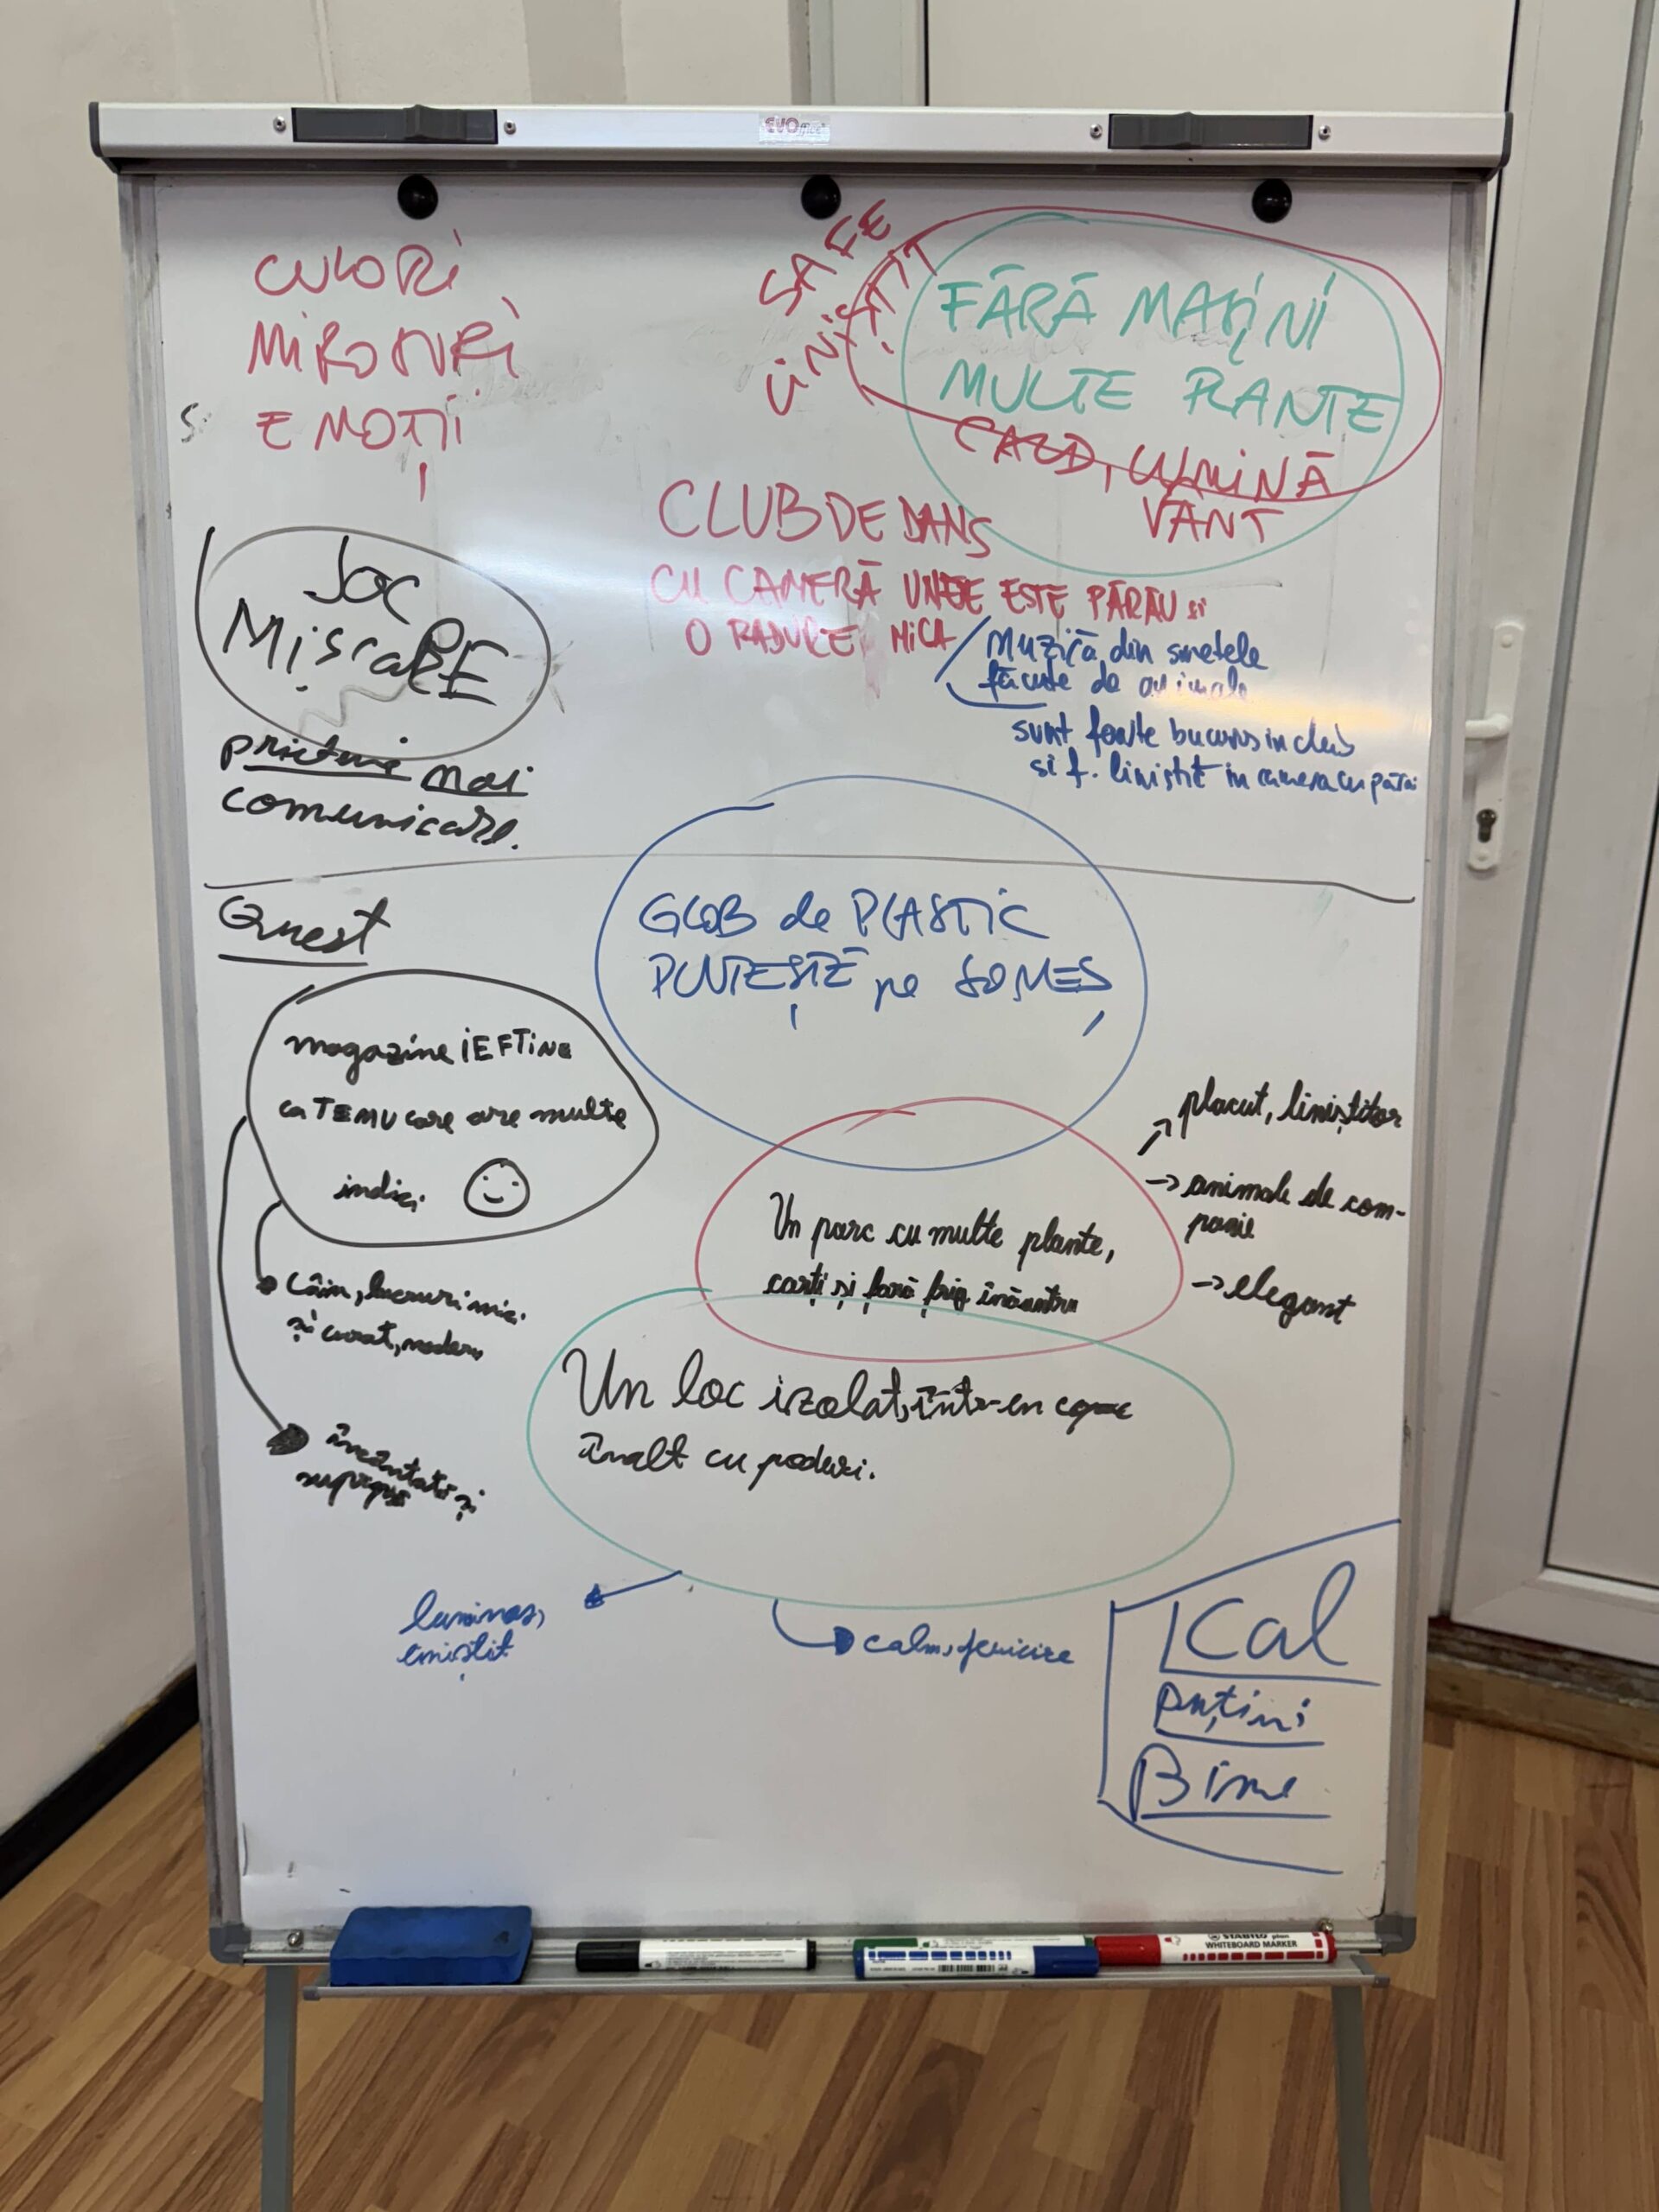 EVOffice
CULORI
MIROSURI
EMOȚII
SAFE
LINIȘTIT
FĂRĂ MAȘINI
MULTE PLANTE
CALD, LUMINĂ
VÂNT
CLUB DE DANS
CU CAMERĂ UNDE ESTE PÂRÂU si
O PADURE MICA
Muzică din sunetele
făcute de animale
sunt foarte bucuros in club
si f. linistit in camera cu pârâu
JOC
MișcaRE
prietenie mai
comunicare.
Quest
GLOB de PLASTIC
PLUTEȘTE pe SOMEȘ
magazine IEFTINE
ca TEMU care are multe
indici
placut, liniștitor
animale de com-
panie
elegant
Un parc cu multe plante,
carți și fară frig înăuntru
lucruri mici
și curat, modern
Un loc izolat, într-un copac
înalt cu poduri.
încântați și
luminos,
liniștit
calm, fericire
Cal
Puțini
Bine
STABILO plan
WHITEBOARD MARKER